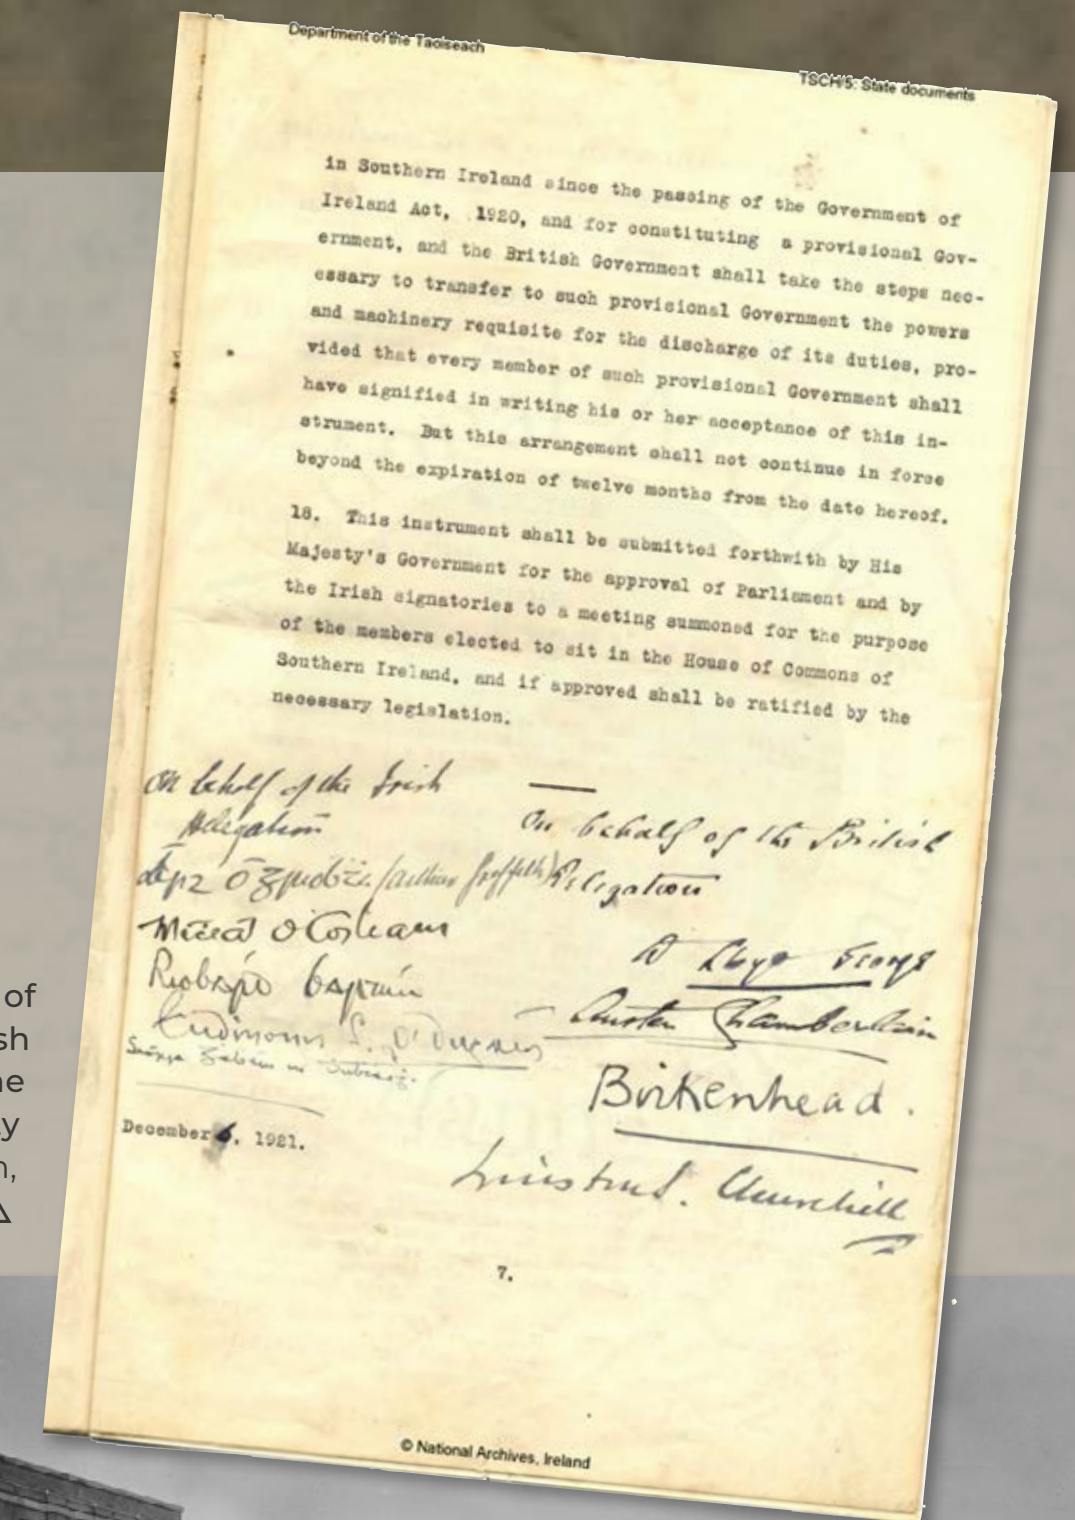 Department of the Taoiseach
TSCH/5: State documents
in Southern Ireland since the passing of the Government of
Ireland Act, 1920, and for constituting a provisional Gov-
ernment, and the British Government shall take the steps nec-
essary to transfer to such provisional Government the powers
and machinery requisite for the discharge of its duties, pro-
vided that every member of such provisional Government shall
have signified in writing his or her acceptance of this in-
strument. But this arrangement shall not continue in force
beyond the expiration of twelve months from the date hereof.
18. This instrument shall be submitted forthwith by His
Majesty's Government for the approval of Parliament and by
the Irish signatories to a meeting summoned for the purpose
of the members elected to sit in the House of Commons of
Southern Ireland, and if approved shall be ratified by the
necessary legislation.
On behalf of the Irish
Delegation
Art Ó Gríobhtha (Arthur Griffith)
Mícheál Ó Coileain
Riobárd Bartún
December 6, 1921.
On behalf of the British
Delegation
D Lloyd George
Austen Chamberlain
Birkenhead.
Winston S. Churchill
7.
© National Archives, Ireland
of
sh
ne
y
n,